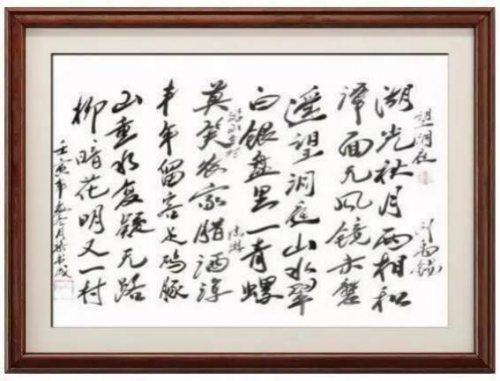 望洞庭
刘禹锡
湖光秋月两相和
潭面无风镜未磨
遥望洞庭山水翠
白银盘里一青螺
游山西村
陆游
莫笑农家腊酒浑
丰年留客足鸡豚
山重水复疑无路
柳暗花明又一村
壬寅年